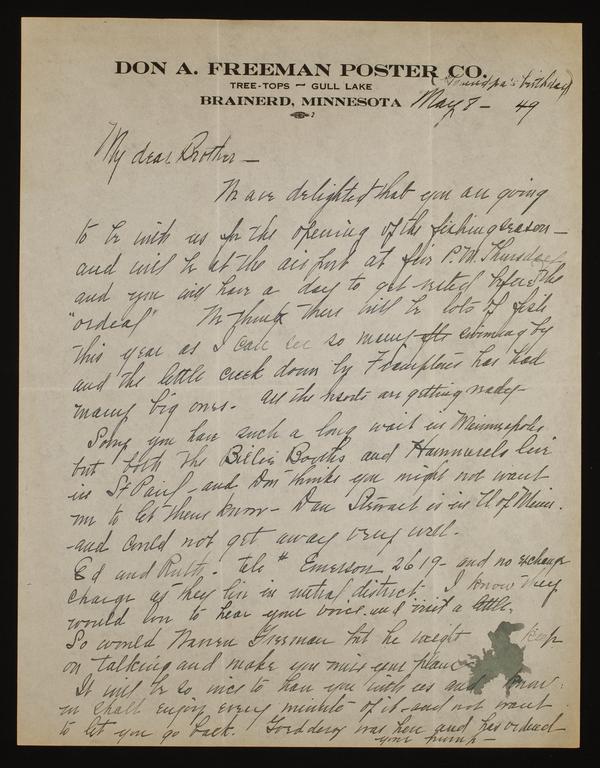 DON A. FREEMAN POSTER CO.
TREE-TOPS — GULL LAKE
BRAINERD, MINNESOTA
(Grandpa's birthday)
May 8 — 49
My dear Brother —
We are delighted that you are going
to be with us for the opening of the fishing season —
and will be at the air port at four P.M. Thursday
and you will have a day to get rested before the
"ordeal" We think there will be lots of fish
this year as I can see so many swimming by
and the little creek down by Framptons has had
many big ones. All the resorts are getting ready
Sorry you have such a long wait in Minneapolis
but both the Billie Booths and Hammerels live
in St Paul — and Don thinks you might not want
me to let them know — Dan Stewart is in U of Minn.
— and could not get away very well.
Ed and Ruth — tele # Emerson 2619 — and no exchange
charge as they live in metral district. I know they
would love to hear your voice and visit a little.
So would Warren Freeman but he might keep
on talking and make you miss your plane
It will be so nice to have you with us and know
we shall enjoy every minute of it — and not want
to let you go back. was here and has ordered
your pump —